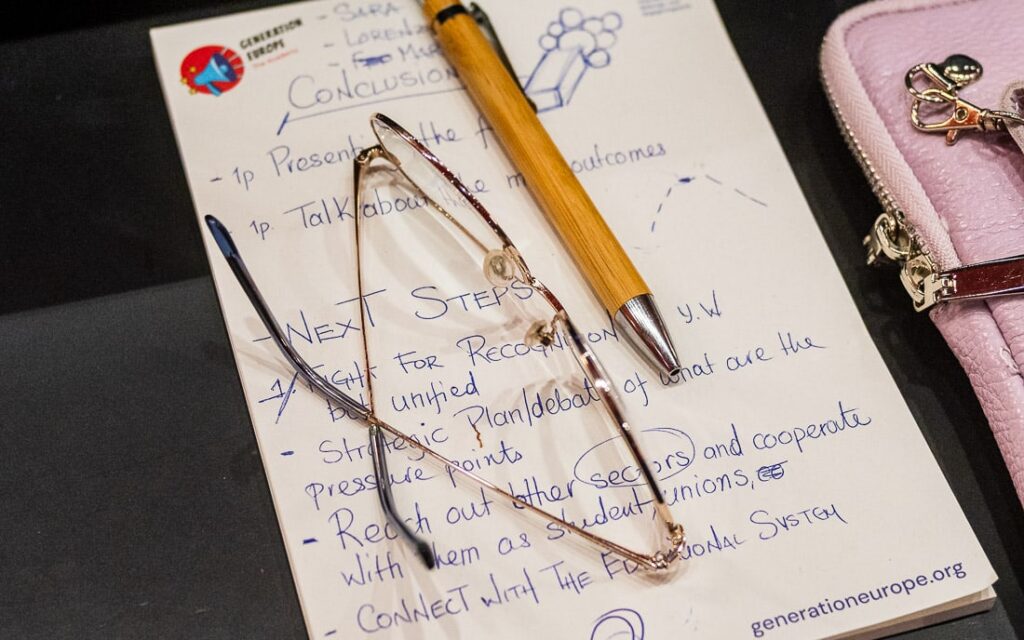 GENERATION
EUROPE
The Academy
- SARA
- LORENZ
CONCLUSION
- 1p Presenti the
- 1p. Talk about the outcomes
- NEXT STEPS
1/ FIGHT FOR RECOGNITION Y.W
but unified
- Strategic Plan/debate of what are the
pressure points
- Reach out other sectors and cooperate
with them as student unions,
- CONNECT WITH THE SYSTEM
generationeurope.org